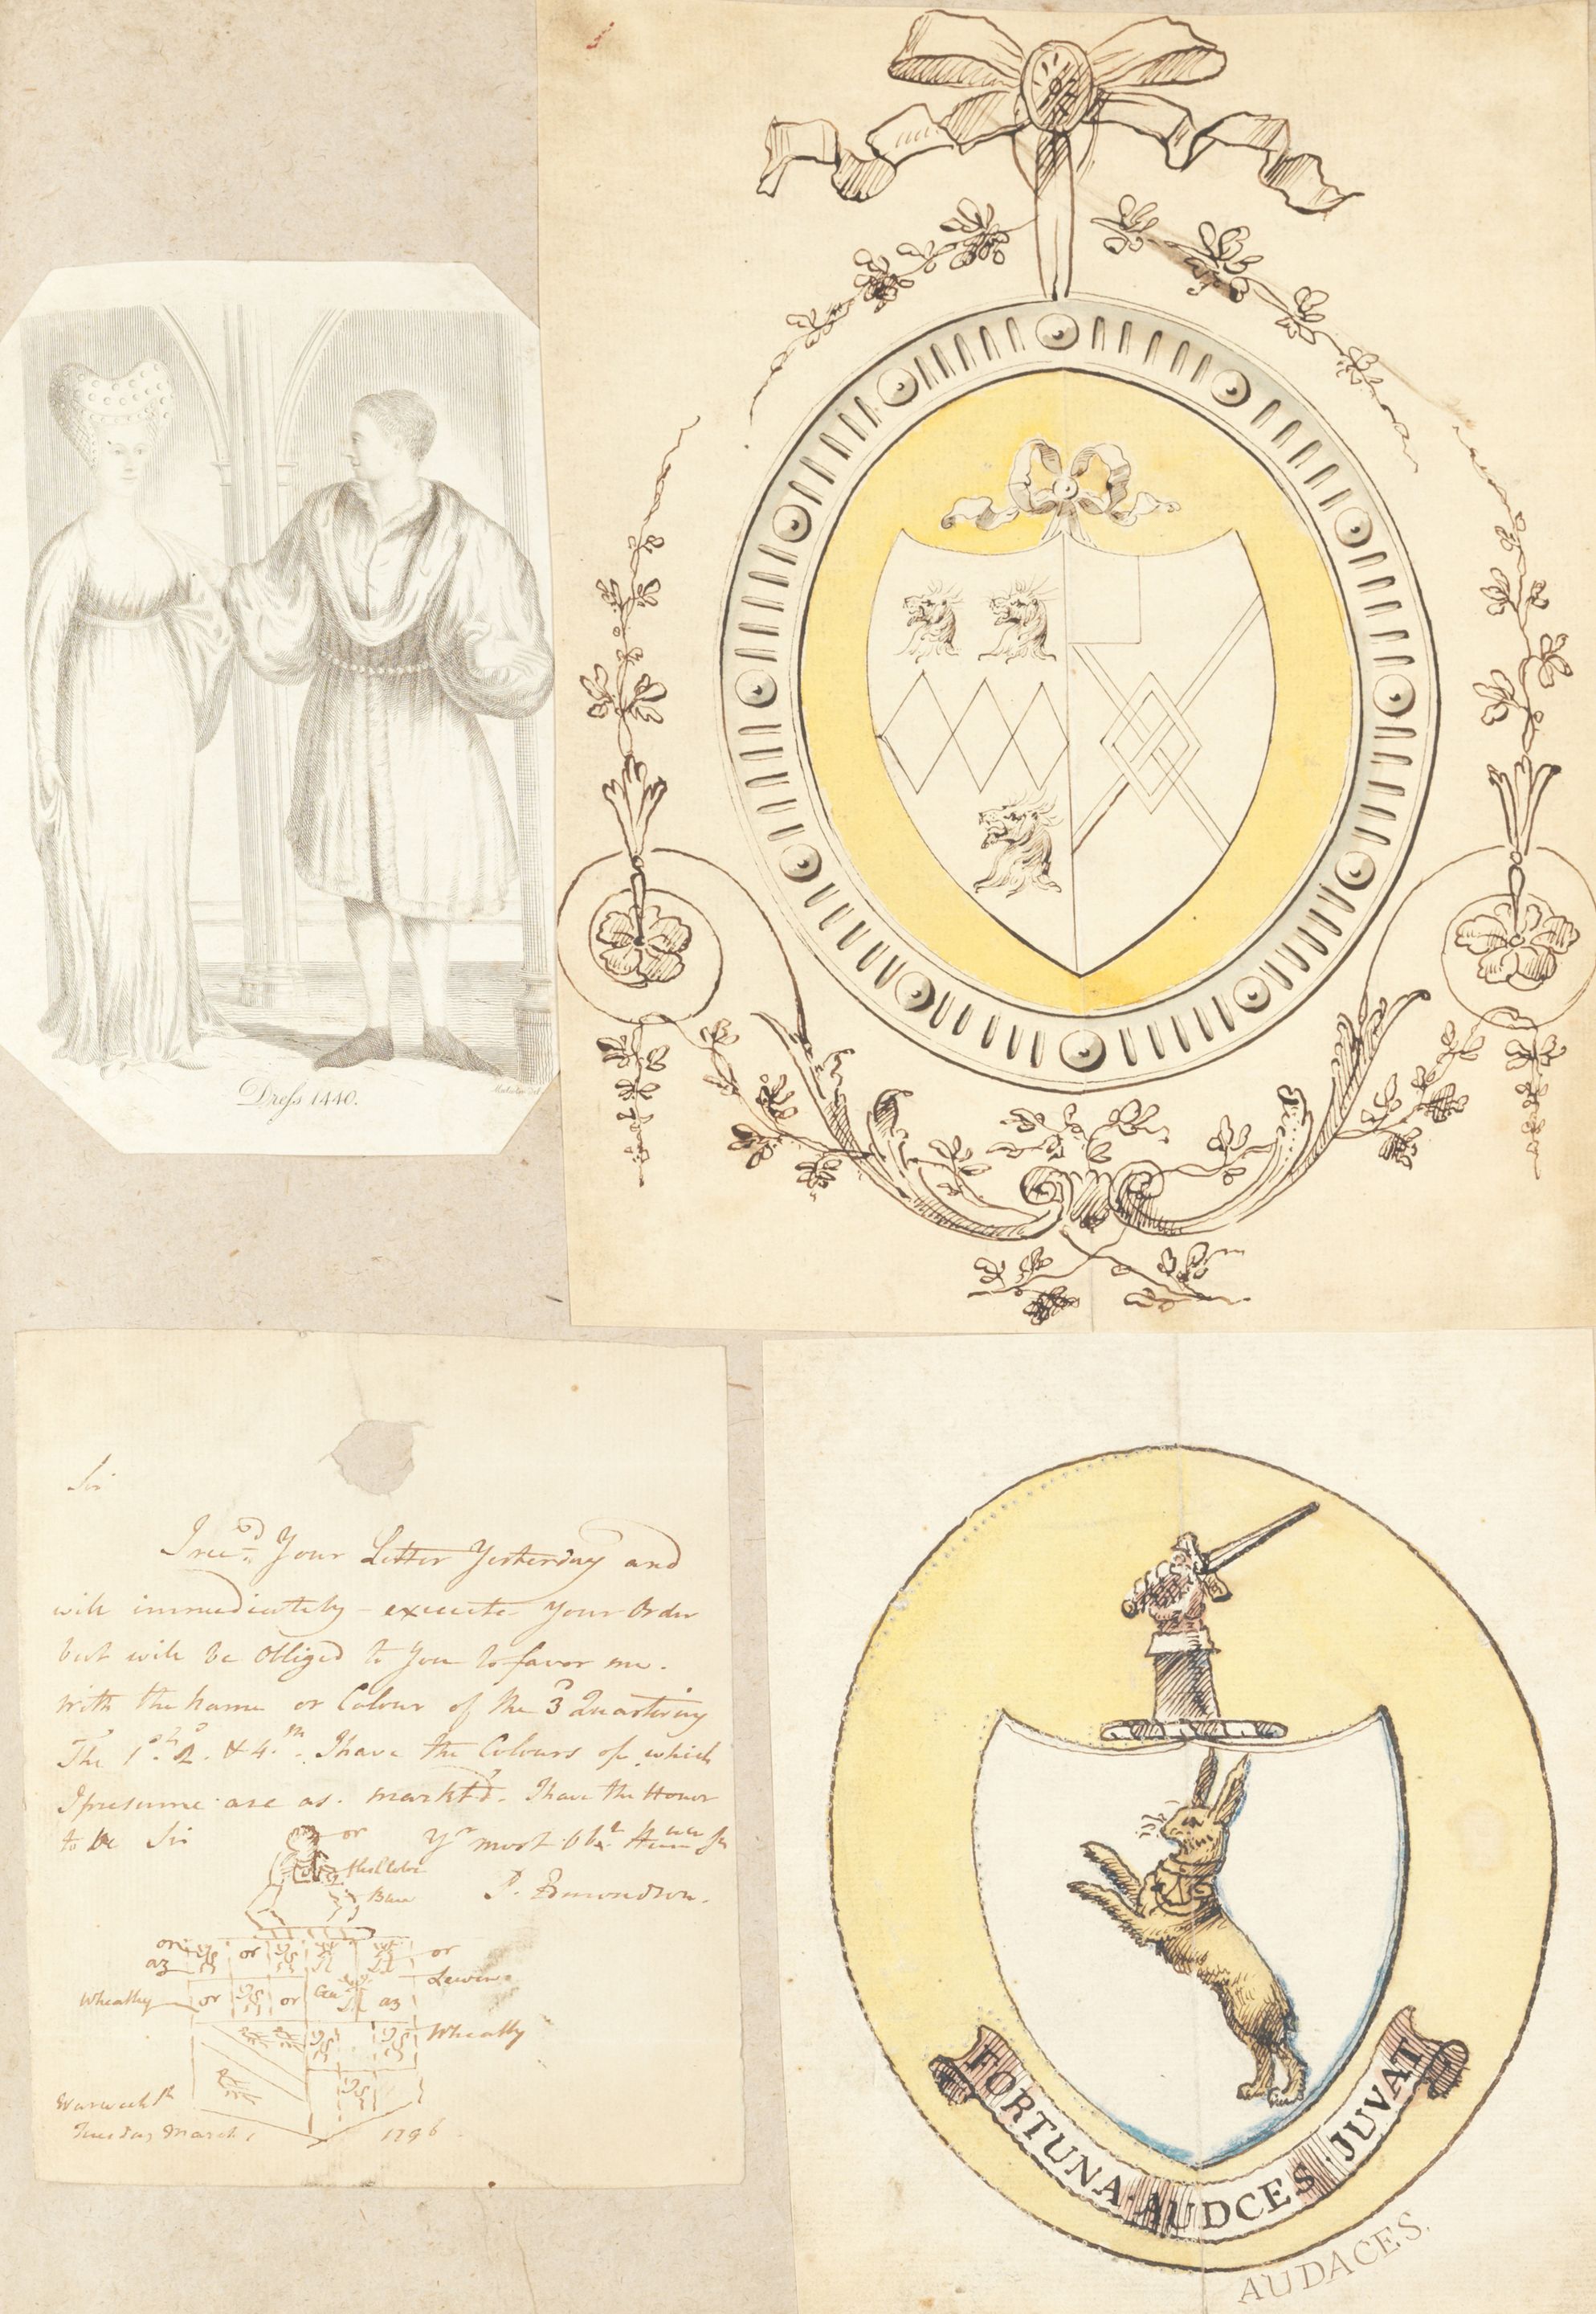 Dreſs 1440.
Sir
I rec.d Your Letter Yesterday and
will immediately execute Your Order
but will be Obliged to You to favor me.
With the name or Colour of the 3 Quartering
The 1st. 2. & 4.th I have the Colours of which
I presume are as markt'd. I have the Honor
to be Sir
Yr most
P. Edmondson.
or
Bare
or
az
or
or
Wheatley
or
or
az
Lewin
Wheatly
Warwick
Tuesday March 1 1796
FORTUNA·AUDCES·JUVAT
AUDACES.